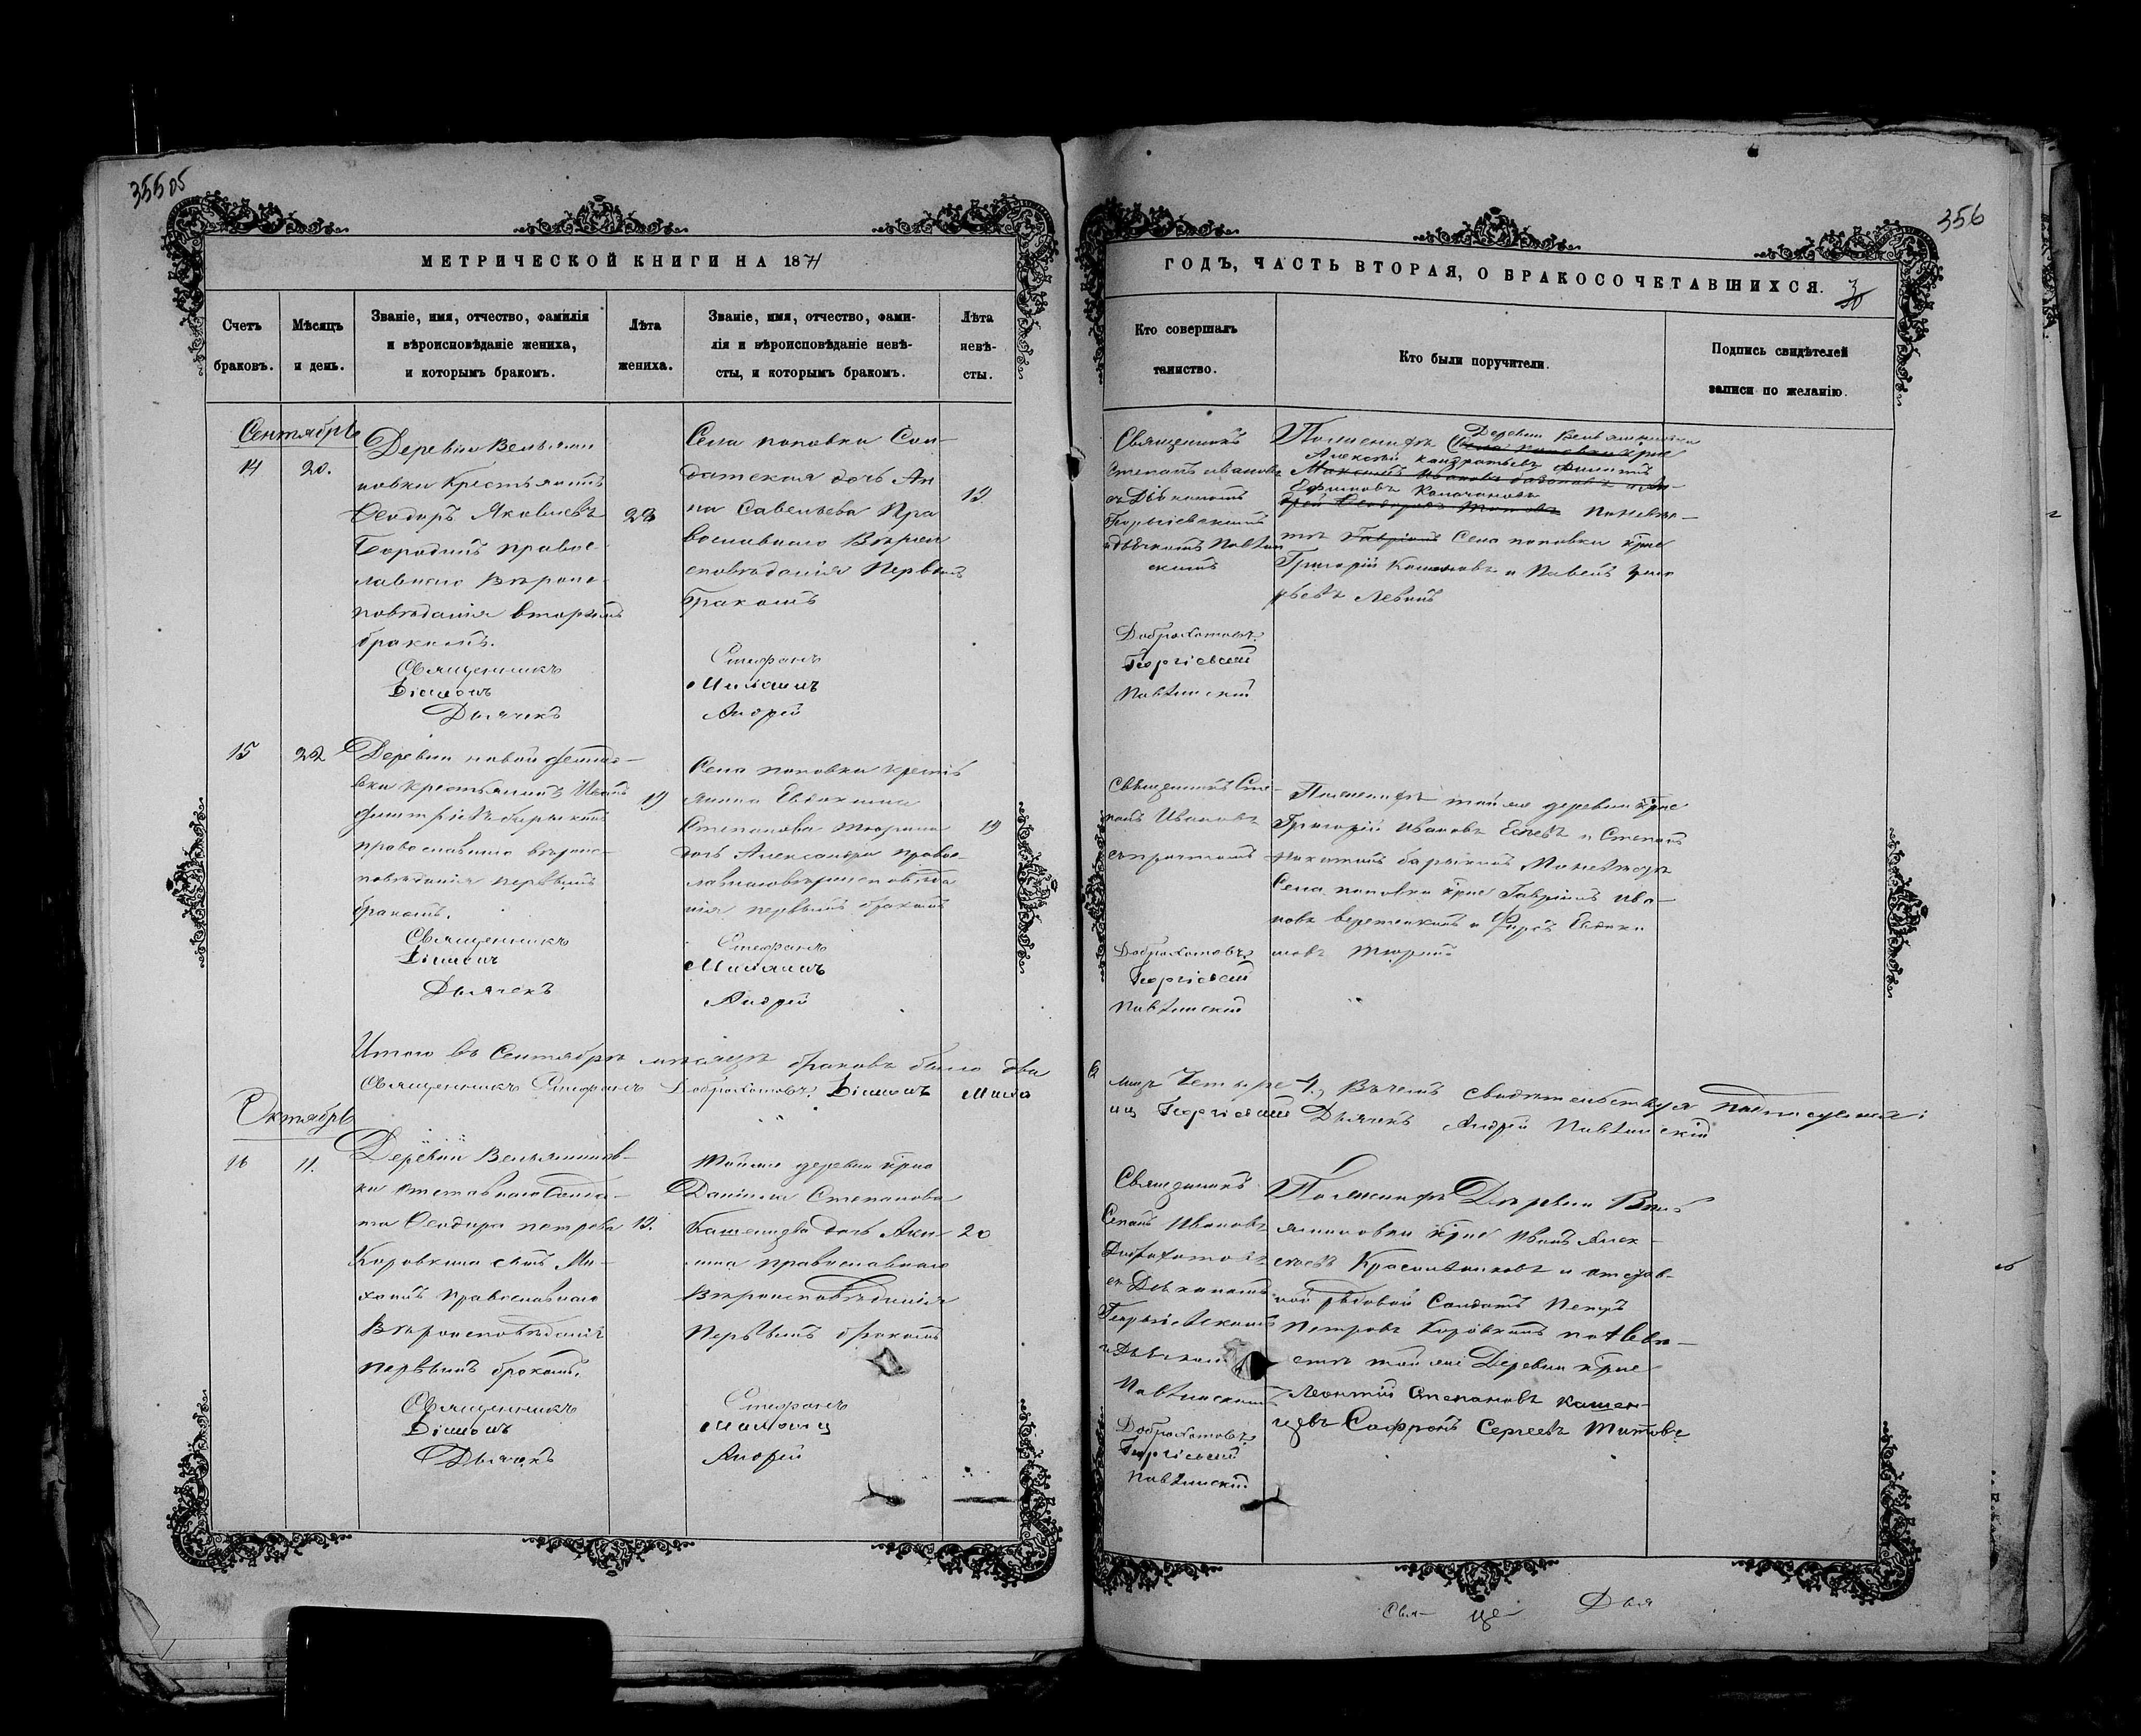 355 об
МЕТРИЧЕСКОЙ КНИГИ НА 1871
Счетъ
браковъ.
Мѣсяцъ
и день.
Званіе, имя, отчество, фамилія
и вѣроисповѣданіе жениха,
и которымъ бракомъ.
Лѣта
жениха.
Званіе, имя, отчество, фами-
лія и вѣроисповѣданіе невѣ-
сты, и которымъ бракомъ.
Лѣта
невѣ-
сты.
Сентябрь
14
20.
Деревни Вельямин
новки Крестьянинъ
Ѳеодоръ Яковлевъ
Бородинъ правос-
лавнаго Вѣроис-
повѣданія вторымъ
бракомъ.
Священникъ
Діаконъ
Дьячекъ
23
Села поповки Сол-
датская дочь Ан
на Савельева Пра
вославнаго Вѣрои
споведанія Первымъ
бракомъ
Стефанъ
Михаилъ
Андрей
19
15
22
Деревни новой
вки крестьянинъ Иванъ
Барыкинъ
православнаго вѣроис-
повѣданія первымъ
бракомъ.
Священникъ
Діаконъ
Дьячекъ
19
Села поповки крестъ
янина Евдокима
Степанова Тюрина
дочь Александра правос-
лавнаго вѣроисповѣда
нія первымъ бракомъ
Стефанъ
Михаилъ
Андрей
19
Итого въ Сентябрѣ мѣсяцѣ браковъ было два
Священникъ Стефанъ Доброхотовъ. Діаконъ Михаи
Октябрь
16
11.
Деревни Вельяминов-
ки отставнаго Солда-
та Ѳеодора петрова
Коровкина сынъ Ми-
хаилъ православнаго
Вѣроисповѣданія
первымъ бракомъ.
Священникъ
Діаконъ
Дьячекъ
19.
Той же деревни крес
Даніила Степанова
дочь Аки-
лина православнаго
Вѣроисповѣданія
Первымъ бракомъ
Стефанъ
Михаилъ
Андрей
20
356
ГОДЪ, ЧАСТЬ ВТОРАЯ, О БРАКОСОЧЕТАВШИХСЯ.
Кто совершалъ
таинство.
Кто были поручители.
Подпись свидѣтелей
записи по желанію.
Священникъ
Степанъ Ивановъ
съ Дьякономъ
Георгіевскимъ
и дьячкомъ Павлин
скимъ
Доброхотовъ.
Георгіевскій
Павлинскій
По женихѣ Деревни Вельяминовки
Алексѣй кандратьевъ
Ефимовъ
По невѣс-
тѣ Села поповки крес
Григорій и Павелъ Григо
рьевъ Левинъ
Священникъ Сте-
панъ Ивановъ
съ причтомъ
Доброхотовъ.
Георгіевскій
Павлинскій
По женихѣ той же деревни крес
Григорій Ивановъ и Степанъ
Никитинъ барыкинъ По невѣстѣ
Села поповки крес Гаврiилъ Ива-
новъ веретенкинъ и Евдоки
мовъ Тюринъ
Четыре 4, Въ чемъ свидѣтельствуя подписуемся:
лъ Георгіевскій Дьячекъ Андрей Павлинскій
Священникъ
Степанъ Ивановъ
Доброхотовъ
съ Дьякономъ
Георгіевскимъ
и Дьячкомъ
Павлинскимъ
Доброхотовъ.
Георгіевскій
Павлинскій
По женихѣ Деревни Вель
яминовки крес Иванъ Алек-
сѣевъ Красильниковъ и отстав-
ной рядовой Солдатъ Петръ
Петровъ Коровкинъ по невѣ-
стѣ той же Деревни крес
Леонтій Степановъ
Сафронъ Сергеевъ Титовъ
Свя- ще- Дья